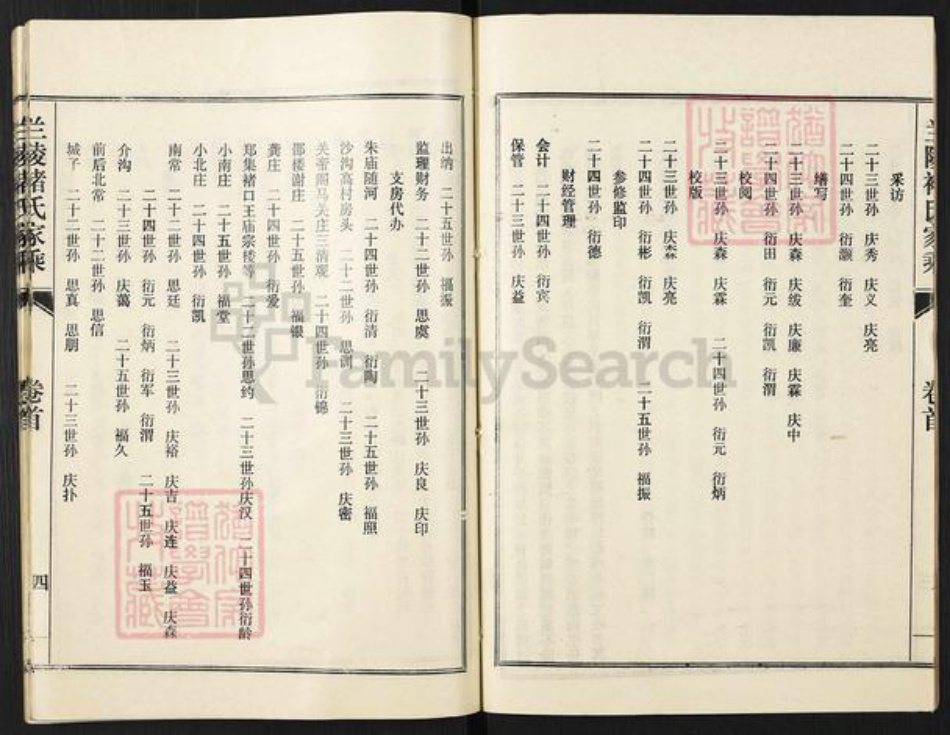 兰陵褚氏家乘
卷首
采访
二十三世孙 庆秀 庆义 庆亮
二十四世孙 衍灏 衍奎
缮写
二十三世孙 庆森 庆绂 庆廉 庆霖 庆中
二十四世孙 衍田 衍元 衍凯 衍渭
校阅
二十三世孙 庆森 庆霖 二十四世孙 衍元 衍炳
校版
二十四世孙 衍彬 衍凯 衍渭 二十五世孙 福振
二十三世孙 庆森 庆亮
参修监印
二十四世孙 衍德
财经管理
会计 二十四世孙 衍宾
保管 二十三世孙 庆益
出纳 二十五世孙 福振
监理财务 二十二世孙 思虞 二十三世孙 庆良 庆印
支房代办
朱庙随河 二十四世孙 衍清 衍陶 二十五世孙 福照
沙沟高村房头 二十二世孙 思训 二十三世孙 庆密
关帝阁马夫庄三清观 二十四世孙 衍锦
邵楼谢庄 二十五世孙 福银
龚庄 二十四世孙 衍爱
郑集褚口王庙宗楼等 二十二世孙思约 二十三世孙庆汉 二十四世孙衍龄
小南庄 二十五世孙 福堂
小北庄 二十四世孙 衍凯
南常 二十二世孙 思廷 二十三世孙 庆裕 庆吉 庆连 庆益 庆森
二十四世孙 衍元 衍炳 衍军 衍渭 二十五世孙 福玉
介沟 二十三世孙 庆蔼 二十五世孙 福久
前后北常 二十二世孙 思信
城子 二十二世孙 思真 思朋 二十三世孙 庆扑
兰陵褚氏家乘
卷首
四
FamilySearch